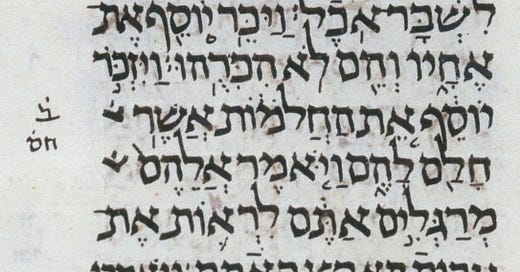 לִשְׁבָּר אֹכֶל׃ וַיַּכֵּר יוֹסֵף אֶת
אֶחָיו וְהֵם לֹא הִכִּרֻהוּ׃ וַיִּזְכֹּר
יוֹסֵף אֵת הַחֲלֹמוֹת אֲשֶׁר
חָלַם לָהֶם וַיֹּאמֶר אֲלֵהֶם
מְרַגְּלִים אַתֶּם לִרְאוֹת אֶת
ב̇
חס